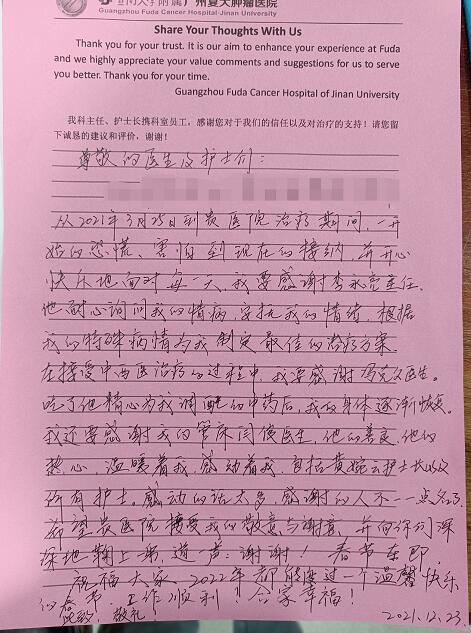 暨南大学附属广州复大肿瘤医院
Guangzhou Fuda Cancer Hospital·Jinan University
Share Your Thoughts With Us
Thank you for your trust. It is our aim to enhance your experience at Fuda
and we highly appreciate your value comments and suggestions for us to serve
you better. Thank you for your time.
Guangzhou Fuda Cancer Hospital of Jinan University
我科主任、护士长携科室员工，感谢您对于我们的信任以及对治疗的支持！请您留
下诚恳的建议和评价，谢谢！
尊敬的医生及护士们：
从2021年3月25日到贵医院治疗期间，一开
始的恐慌、害怕到现在的接纳，并开心
快乐地面对每一天，我要感谢李永主任。
他耐心询问我的情病，安抚我的情绪，根据
我的特殊病情为我制定最佳的治疗方案。
在接受中西医治疗的过程中，我要感谢冯医生。
吃了他精心为我调配的中药后，我的身体逐渐恢复。
我还要感谢我的管床闫医生，他的善良、他的
热心，温暖着我，感动着我，包括黄婉云护士长以及
所有护士。感动的话太多，感谢的人不一一点名了，
希望贵医院接受我的敬意与谢意，并向你们深
深地鞠上一躬，道一声：谢谢！春节在即，
祝福大家2022年都能度过一个温馨快乐
的春节，工作顺利！合家幸福！
此致，敬礼，
2021.12.23